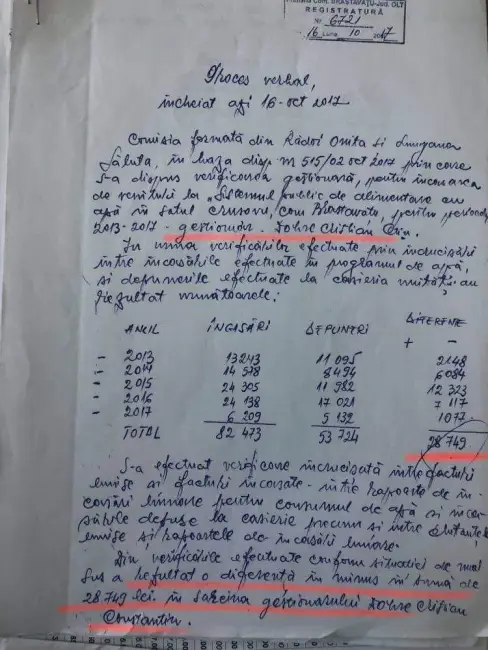 Primăria Com. BRASTAVĂȚU-Jud. OLT
REGISTRATURĂ
Nr. 6721
16 Luna 10 2017
Proces verbal,
încheiat azi 16-oct 2017
Comisia formată din Rădoi Onita si
în baza disp nr 515/02 oct 2017 prin care
s-a dispus verificarea gestionară, pentru încasarea
de venituri la „Sistemul public de alimentare cu
apă în satul Crusovu, com Brastavatu, pentru perioada
2013-2017 - gestionar. Dobre Clistian Ctin.
În urma verificărilor efectuate prin
între încasările efectuate în programul de apă,
si depunerile efectuate la casieria unității au
rezultat următoarele:
ANUL ÎNCASĂRI DEPUNERI DIFERENȚE
+ -
- 2013 13243 11 095 2148
- 2014 14 578 8494 6084
- 2015 24 305 11 982 12 323
- 2016 24 138 17 021 7 117
- 2017 6 209 5 132 1077
TOTAL 82 473 53 724 28 749
S-a efectuat verificare încrucisată între facturi
emise si facturi încasate - între rapoarte de în-
casări pentru consumul de apă si înca-
sările depuse la casierie precum si între
emise si rapoartele de încasări
Din verificările efectuate conform situatiei de mai
sus a rezultat o diferență în minus în sumă de
28.749 lei. în sarcina gestionarului Dobre Clistian
Constantin.